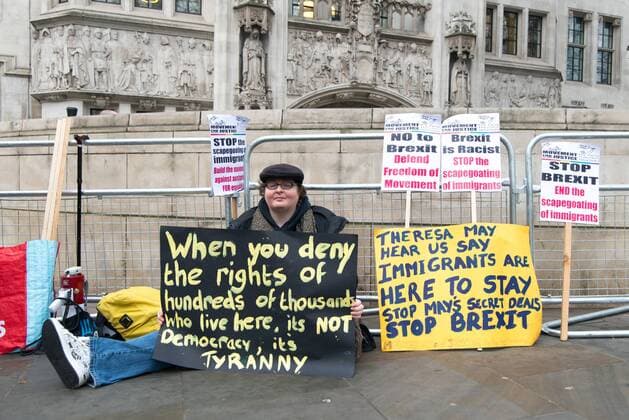 MOVEMENT FOR JUSTICE
STOP the
scapegoating of
immigrants
Build the
against
MOVEMENT FOR JUSTICE
NO to
Brexit
Defend
Freedom of
Movement
Brexit
is Racist
STOP the
scapegoating
of immigrants
MOVEMENT FOR JUSTICE
STOP
BREXIT
END the
scapegoating
of immigrants
When you deny
the rights of
hundreds of thousands
who live here, its NOT
Democracy, its
TYRANNY
THERESA MAY
HEAR US SAY
IMMIGRANTS ARE
HERE TO STAY
STOP MAY'S SECRET DEALS
STOP BREXIT